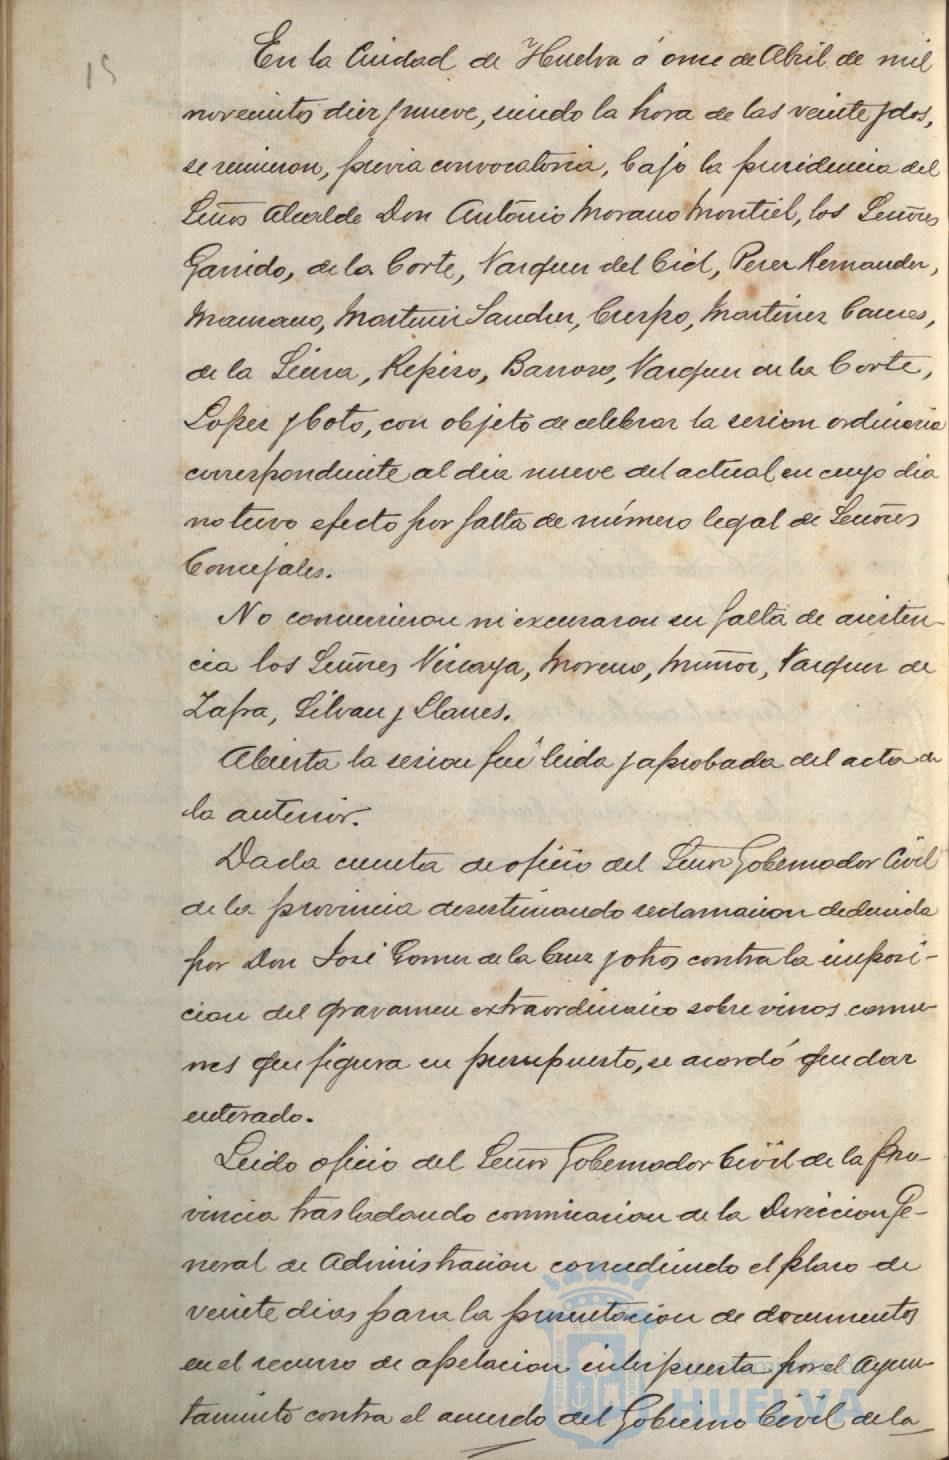 15
En la Ciudad de Huelva á once de Abril de mil
novecientos diez y nueve, siendo la hora de las veinte y dos,
se reunieron, previa convocatoria, bajo la presidencia del
Señor Alcalde Don Antonio Morano Montiel, los Señores
Garrido, de la Corte, Vazquez del Cid, Perez Hernandez,
Manzano, Martinez Sanchez, Crespo, Martinez Cames,
de la Sierra, Repiso, Barroso, Vazquez de la Corte,
Lopez y Coto, con objeto de celebrar la sesion ordinaria
correspondiente al dia nueve del actual en cuyo dia
no tuvo efecto por falta de número legal de Señores
Concejales.
No concurrieron ni excusaron su falta de asisten-
cia los Señores Vizcaya, Moreno, Muñoz, Vazquez de
Zafra, Silvan y Llanes.
Abierta la sesion fué leida y aprobada del acta de
la anterior.
Dada cuenta de oficio del Señor Gobernador Civil
de la provincia desestimando reclamacion deducida
por Don José Gomez de la Cruz y otros contra la imposi-
cion del gravamen extraordinario sobre vinos comu-
nes que figura en presupuesto, se acordó quedar
enterado.
Leido oficio del Señor Gobernador Civil de la pro-
vincia trasladando comunicacion de la Direccion Ge-
neral de Administracion concediendo el plazo de
veinte dias para la presentacion de documentos
en el recurso de apelacion interpuesta por el Ayun-
tamiento contra el acuerdo del Gobierno Civil de la
HUELVA